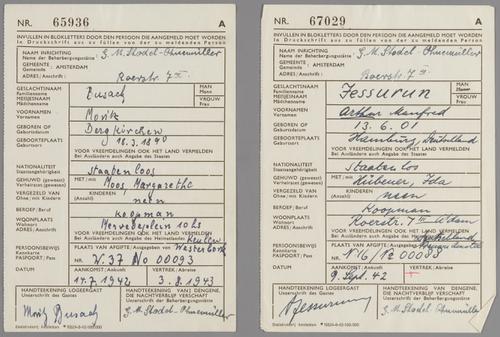 NR. 65936 A
INVULLEN IN BLOKLETTERS DOOR DEN PERSOON DIE AANGEMELD MOET WORDEN
In Druckschrift aus zu füllen von der zu meldenden Person
NAAM INRICHTING
Name der Beherbergungsstätte: G.M. Stodel-Ohnemüller
GEMEENTE
Gemeinde : AMSTERDAM
ADRES/Anschrift: Roerstr. 7 III
GESLACHTSNAAM
Familienname
MEISJESNAAM
Mädchenname
Busach
MAN
Mann
VROUW
Frau
VOORNAMEN
Vornamen
Moritz
GEBOREN OP
Geburtsdatum
Bergkirchen
GEBOORTEPLAATS
Geburtsort
18.3.1890
VOOR VREEMDELINGEN OOK HET LAND VERMELDEN
Bei Ausländern auch Angabe des Staates
NATIONALITEIT
Staatsangehörigkeit
Staatenloos
GEHUWD (geweest)
Verheiratet (gewesen)
MET/mit
Moos, Margarethe
VERGEZELD VAN
Ohne/mit Kindern
KINDEREN
(Anzahl)
neen
BEROEP/Beruf
koopman
WOONPLAATS
Wohnort
ADRES/Anschrift
VOOR VREEMDELINGEN OOK HET LAND VERMELDEN
Bei Ausländern auch Angabe des Heimatlandes
Keulen
PERSOONSBEWIJS
Kennkarte
PASPOORT/Pass
PLAATS VAN AFGIFTE/Ausgegeben von Westerbork
NR. W.37 No 00093
DATUM
AANKOMST/Ankunft
14.7.1942
VERTREK/Abreise
3.8.1943
HANDTEEKENING LOGEERGAST
Unterschrift des Gastes
Moritz Busach
HANDTEEKENING VAN DENGENE,
DIE NACHTVERBLIJF VERSCHAFT
Unterschrift der Beherbergungsstätte
G.M. Stodel-Ohnemüller
NR. 67029 A
INVULLEN IN BLOKLETTERS DOOR DEN PERSOON DIE AANGEMELD MOET WORDEN
In Druckschrift aus zu füllen von der zu meldenden Person
NAAM INRICHTING
Name der Beherbergungsstätte: G.M. Stodel-Ohnemüller
GEMEENTE
Gemeinde : AMSTERDAM
ADRES/Anschrift: Roerstr. 7 III
GESLACHTSNAAM
Familienname
MEISJESNAAM
Mädchenname
Jessurun
MAN
Mann
VROUW
Frau
VOORNAMEN
Vornamen
Arthur Manfred
GEBOREN OP
Geburtsdatum
13.6.01
GEBOORTEPLAATS
Geburtsort
Hamburg, Deutschland
VOOR VREEMDELINGEN OOK HET LAND VERMELDEN
Bei Ausländern auch Angabe des Staates
NATIONALITEIT
Staatsangehörigkeit
Staatenloos
GEHUWD (geweest)
Verheiratet (gewesen)
MET/mit
Hübener, Ida
VERGEZELD VAN
Ohne/mit Kindern
KINDEREN
(Anzahl)
neen
BEROEP/Beruf
Koopman
WOONPLAATS
Wohnort
ADRES/Anschrift
Roerstr. 7 III A'dam
VOOR VREEMDELINGEN OOK HET LAND VERMELDEN
Bei Ausländern auch Angabe des Heimatlandes
Deutschland
PERSOONSBEWIJS
Kennkarte
PASPOORT/Pass
PLAATS VAN AFGIFTE/Ausgegeben von
DATUM
AANKOMST/Ankunft
9. Sept. 42
VERTREK/Abreise
HANDTEEKENING LOGEERGAST
Unterschrift des Gastes
AJessurun
HANDTEEKENING VAN DENGENE,
DIE NACHTVERBLIJF VERSCHAFT
Unterschrift der Beherbergungsstätte
G.M. Stodel-Ohnemüller